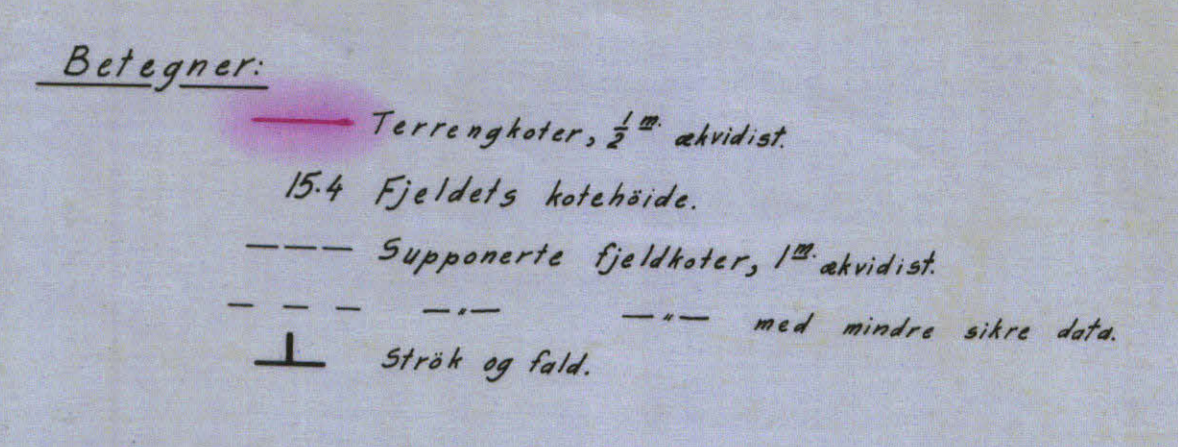 Betegner:
Terrengkoter, ½ m. ækvidist.
15.4 Fjeldets kotehöide.
Supponerte fjeldkoter, 1 m. ækvidist.
—〃— —〃— med mindre sikre data.
Strök og fald.